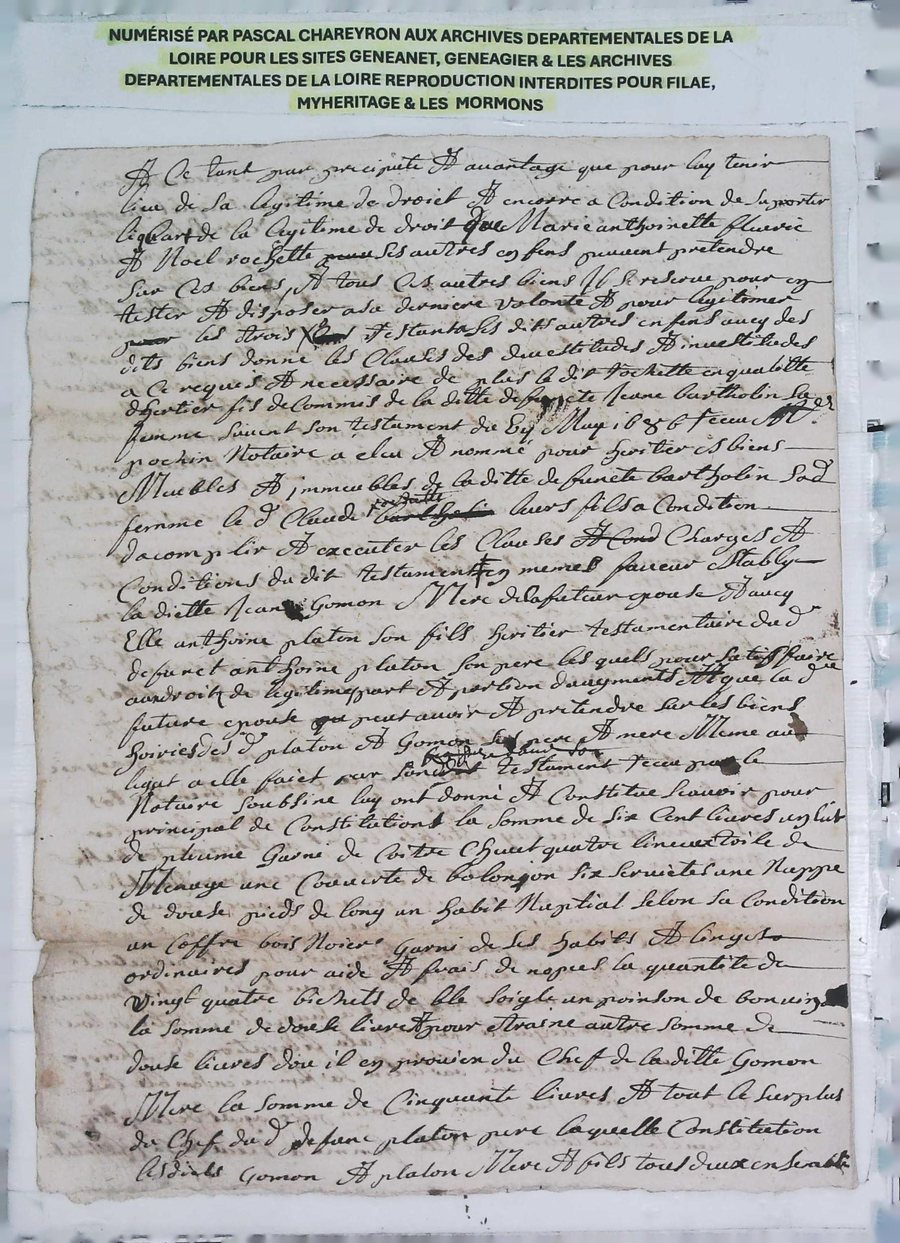 NUMÉRISÉ PAR PASCAL CHAREYRON AUX ARCHIVES DEPARTEMENTALES DE LA
LOIRE POUR LES SITES GENEANET, GENEAGIER & LES ARCHIVES
DEPARTEMENTALES DE LA LOIRE REPRODUCTION INTERDITES POUR FILAE,
MYHERITAGE & LES MORMONS
Et Ce tant par precipute Et auantage que pour luy tenir
lieu de sa legitime de droict Et encorre a Condition de suporter
de la legitime de droit que Marie anthoinette fleurie
Et Noel rochette ses autres enfens peuuent pretendre
sur ces biens, Et tous ces autres biens Il se reserue pour en
tester Et disposer a sa derniere volonté Et pour legitimer
les trois restants ses dits autres enfens aucy des
dits biens donne les Clauses des deuestitudes Et inuestitudes
a Ce requis Et necessaire de plus le dit rochette en qualitte
dhertier fis de Commis de la ditte defuncte Jeane bartholin sa
femme suiuent son testament du May 1686 receu Me
pochin Notaire a eleu Et nommé pour heritier es biens
Meubles Et immeubles de la ditte defuncte bartholin sad
femme le d Claude rochette leurs fils a Condition
dacomplir Et executer les Clauses Et Cond Charges Et
Conditions du dit testament en meme faueur Establye
la diette Jeane Gomon Mere de la future epouse Et aucy
Elle anthoine platon son fils heritier testamentaire du d
defunct anthoine platon son pere les quels pour satisffaire
au droit de legitime part Et portion daugments que la d
future epouse peut auoir Et pretendre sur les biens
hoiries des d platon Et Gomon ses pere Et mere Meme au
legat a elle faict par son testament receu par le
Notaire soubsine luy ont donné Et Constitue scauoir pour
principal de Constitutions la somme de six Cent liures un lict
de plume Garni de Coitre Cheuet quatre linceux toile de
Menage une Couuerte de six seruietes une Nappe
de douse pieds de long un habit Nuptial selon sa Condition
un Coffre bois Noier Garni de ses habits Et linges
ordinaires pour aide Et frais de nopces la quantité de
vingt quatre bichets de blé soigle un poinson de bon uin
la somme de douse liures pour Etraine autre somme de
douse liures dou il en prouien du Chef de la ditte Gomon
Mere la somme de Cinquante liures Et tout le surplus
du Chef du d defunc platon pere laquelle Constitution
lesdicts Gomon Et platon Mere Et fils tous deux ensemble